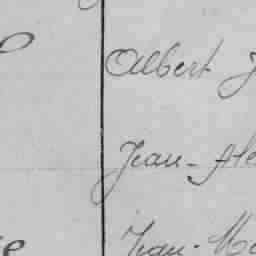 Albert J
Jean-Ale
Jean-Ma